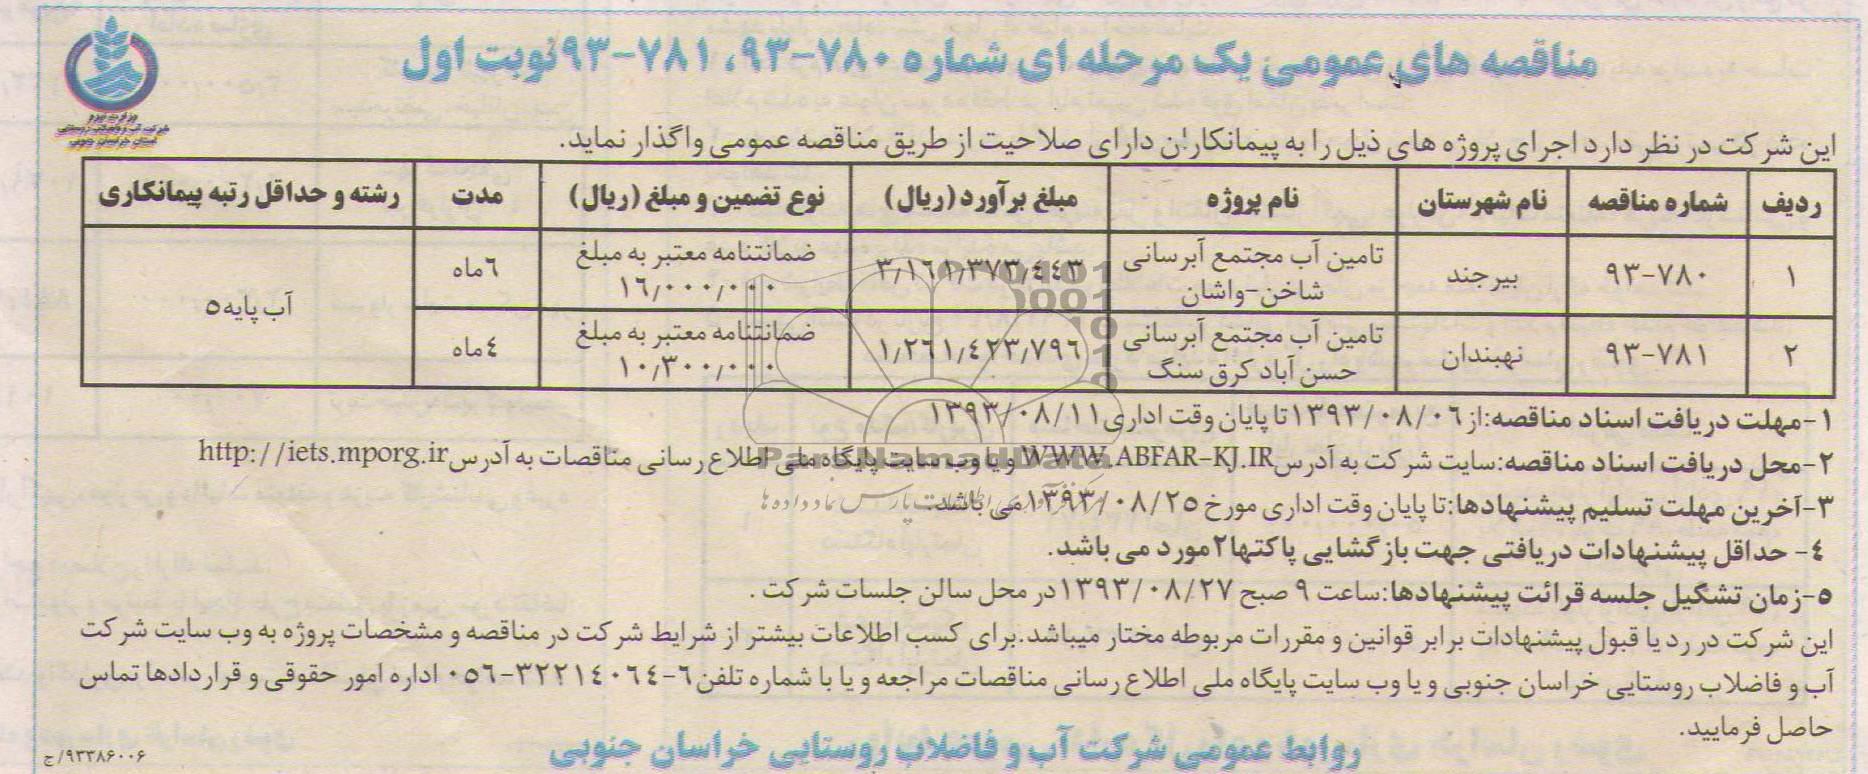 مناقصه های عمومی یک مرحله ای شماره ۷۸۰-۹۳، ۷۸۱-۹۳ نوبت اول
وزارت نیرو
شرکت آب و فاضلاب روستایی
استان خراسان جنوبی
این شرکت در نظر دارد اجرای پروژه های ذیل را به پیمانکاران دارای صلاحیت از طریق مناقصه عمومی واگذار نماید.
ردیف شماره مناقصه نام شهرستان نام پروژه مبلغ برآورد (ریال) نوع تضمین و مبلغ (ریال) مدت رشته و حداقل رتبه پیمانکاری
۱ ۷۸۰-۹۳ بیرجند تامین آب مجتمع آبرسانی شاخن-واشان ۳٫۱۶۱٫۳۷۳٫۴۴۳ ضمانتنامه معتبر به مبلغ ۱۶٫۰۰۰٫۰۰۰ ۶ماه آب پایه۵
۲ ۷۸۱-۹۳ نهبندان تامین آب مجتمع آبرسانی حسن آباد کرق سنگ ۱٫۲۶۱٫۴۲۳٫۷۹۶ ضمانتنامه معتبر به مبلغ ۱۰٫۳۰۰٫۰۰۰ ۴ماه
۱-مهلت دریافت اسناد مناقصه:از ۱۳۹۳/۰۸/۰۶ تا پایان وقت اداری ۱۳۹۳/۰۸/۱۱
۲-محل دریافت اسناد مناقصه:سایت شرکت به آدرس WWW.ABFAR-KJ.IR و یا وب سایت پایگاه ملی اطلاع رسانی مناقصات به آدرس http://iets.mporg.ir
ParsNamadData
۳-آخرین مهلت تسلیم پیشنهادها:تا پایان وقت اداری مورخ ۱۳۹۳/۰۸/۲۵ می باشد.
۴- حداقل پیشنهادات دریافتی جهت بازگشایی پاکتها۲مورد می باشد.
۵-زمان تشگیل جلسه قرائت پیشنهادها:ساعت ۹ صبح ۱۳۹۳/۰۸/۲۷ در محل سالن جلسات شرکت .
این شرکت در رد یا قبول پیشنهادات برابر قوانین و مقررات مربوطه مختار میباشد.برای کسب اطلاعات بیشتر از شرایط شرکت در مناقصه و مشخصات پروژه به وب سایت شرکت
آب و فاضلاب روستایی خراسان جنوبی و یا وب سایت پایگاه ملی اطلاع رسانی مناقصات مراجعه و یا با شماره تلفن ۶-۳۲۲۱۴۰۶۴-۰۵۶ اداره امور حقوقی و قراردادها تماس
حاصل فرمایید.
روابط عمومی شرکت آب و فاضلاب روستایی خراسان جنوبی
۹۳۳۸۶۰۰۶/ج